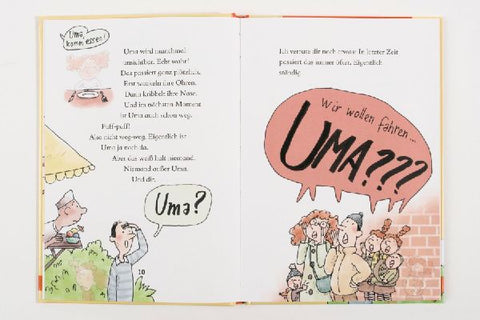 Uma,
komm essen!
Uma wird manchmal
unsichtbar. Echt wahr!
Das passiert ganz plötzlich.
Erst wackeln ihre Ohren.
Dann kribbelt ihre Nase.
Und im nächsten Moment
ist Uma auch schon weg.
Puff-paff!
Also nicht weg-weg. Eigentlich ist
Uma ja noch da.
Aber das weiß halt niemand.
Niemand außer Uma.
Und dir.
Uma?
10
Ich verrate dir noch etwas: In letzter Zeit
passiert das immer öfter. Eigentlich
ständig.
Wir wollen fahren...
UMA???